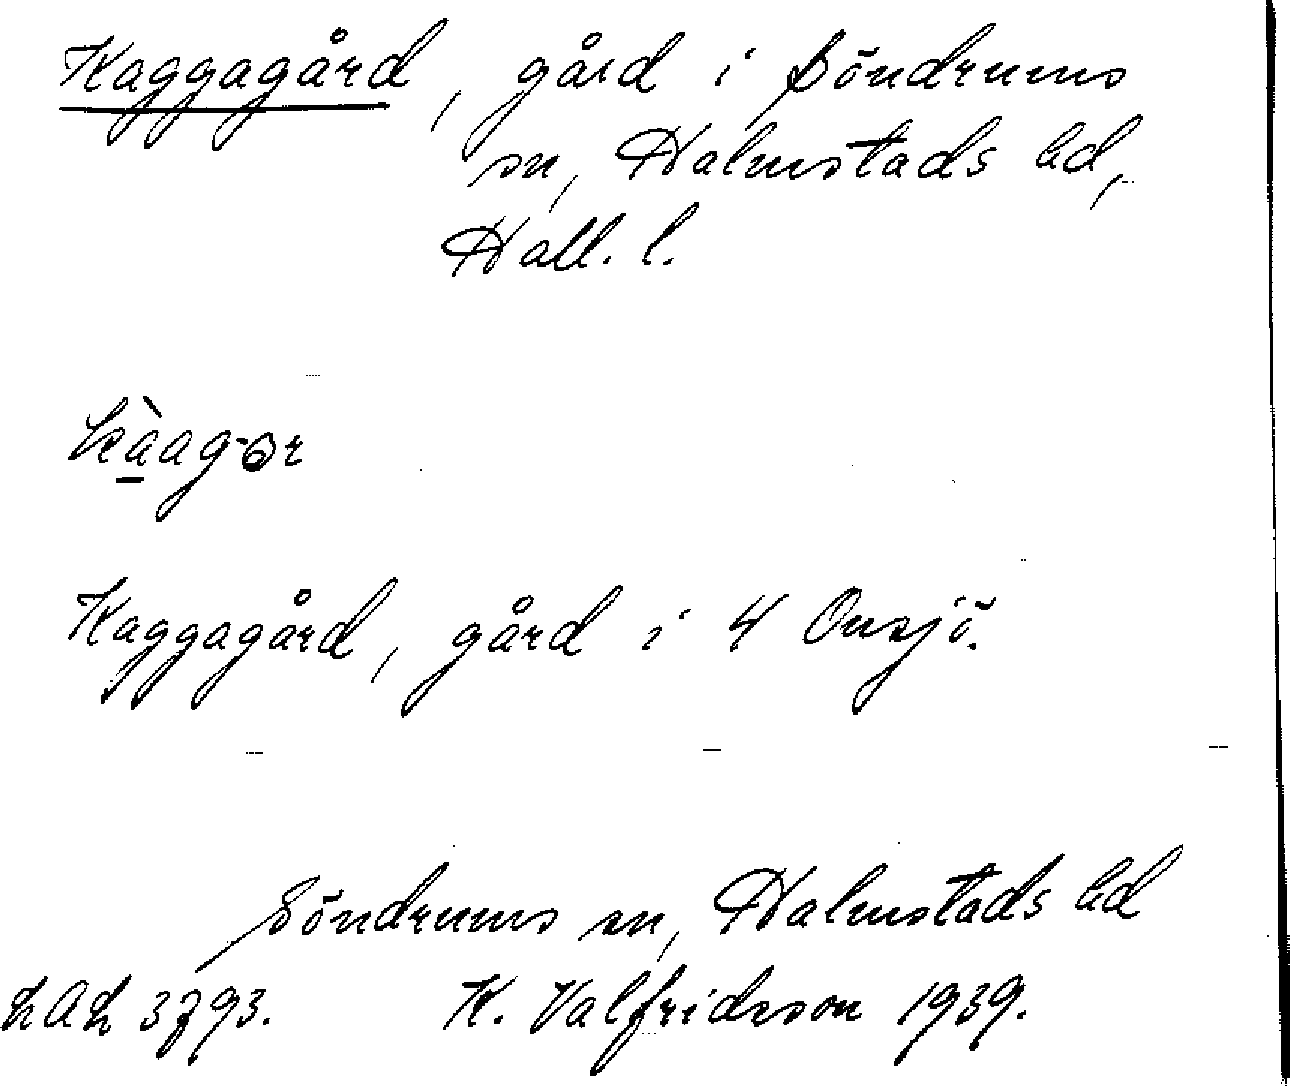 Kaggagård, gård i Söndrums
sn, Halmstads hd,
Hall. l.
Kaggagård, gård i 4 Onsjö.
Söndrums sn, Halmstads hd
3793. K. Valfridsson 1939.